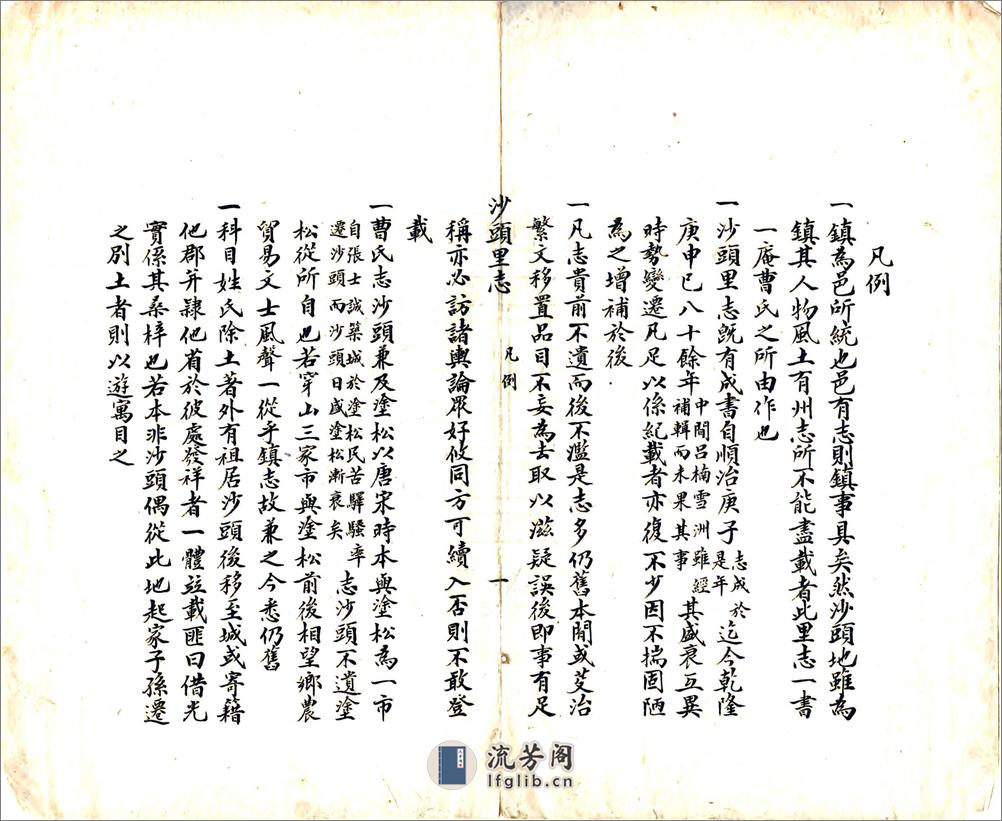 凡例
一鎮為邑所統也邑有志則鎮事具矣然沙頭地雖為
鎮其人物風土有州志所不能盡載者此里志一書
一庵曹氏之所由作也
一沙頭里志既有成書自順治庚子志成於是年迄今乾隆
庚申已八十餘年中間呂楠雪洲雖經補輯而未果其事其盛衰互異
時勢變遷凡足以係紀載者亦復不少因不揣固陋
為之增補於後
一凡志貴前不遺而後不濫是志多仍舊本間或芟治
繁文移置品目不妄為去取以滋疑誤後即事有足
沙頭里志 凡例 一
稱亦必訪諸輿論眾好攸同方可續入否則不敢登
載
一曹氏志沙頭兼及塗松以唐宋時本與塗松為一市
自張士誠築城於塗松民苦驛騷率遷沙頭而沙頭日盛塗松漸衰矣志沙頭不遺塗
松從所自也若穿山三家市與塗松前後相望鄉農
貿易文士風聲一從乎鎮志故兼之今悉仍舊
一科目姓氏除土著外有祖居沙頭後移至城或寄籍
他郡并隸他省於彼處發祥者一體竝載匪曰借光
實係其桑梓也若本非沙頭偶從此地起家子孫遷
之別土者則以遊寓目之
流芳阁
lfglib.cn